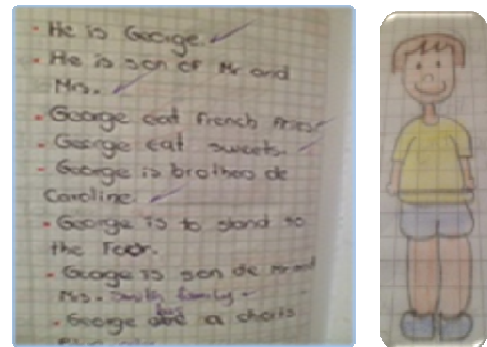 - He is George.
- He is son of Mr and
Mrs.
- George eat french fries
- George eat sweets.
- George is brother de
Caroline.
- George is to stand to
the
- George is son de Mr and
Mrs. family
- George a